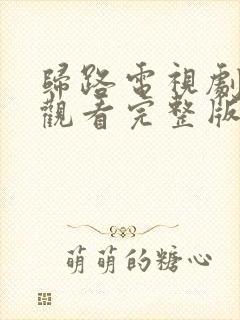 歸路電視劇
觀看完整版
萌萌的糖心